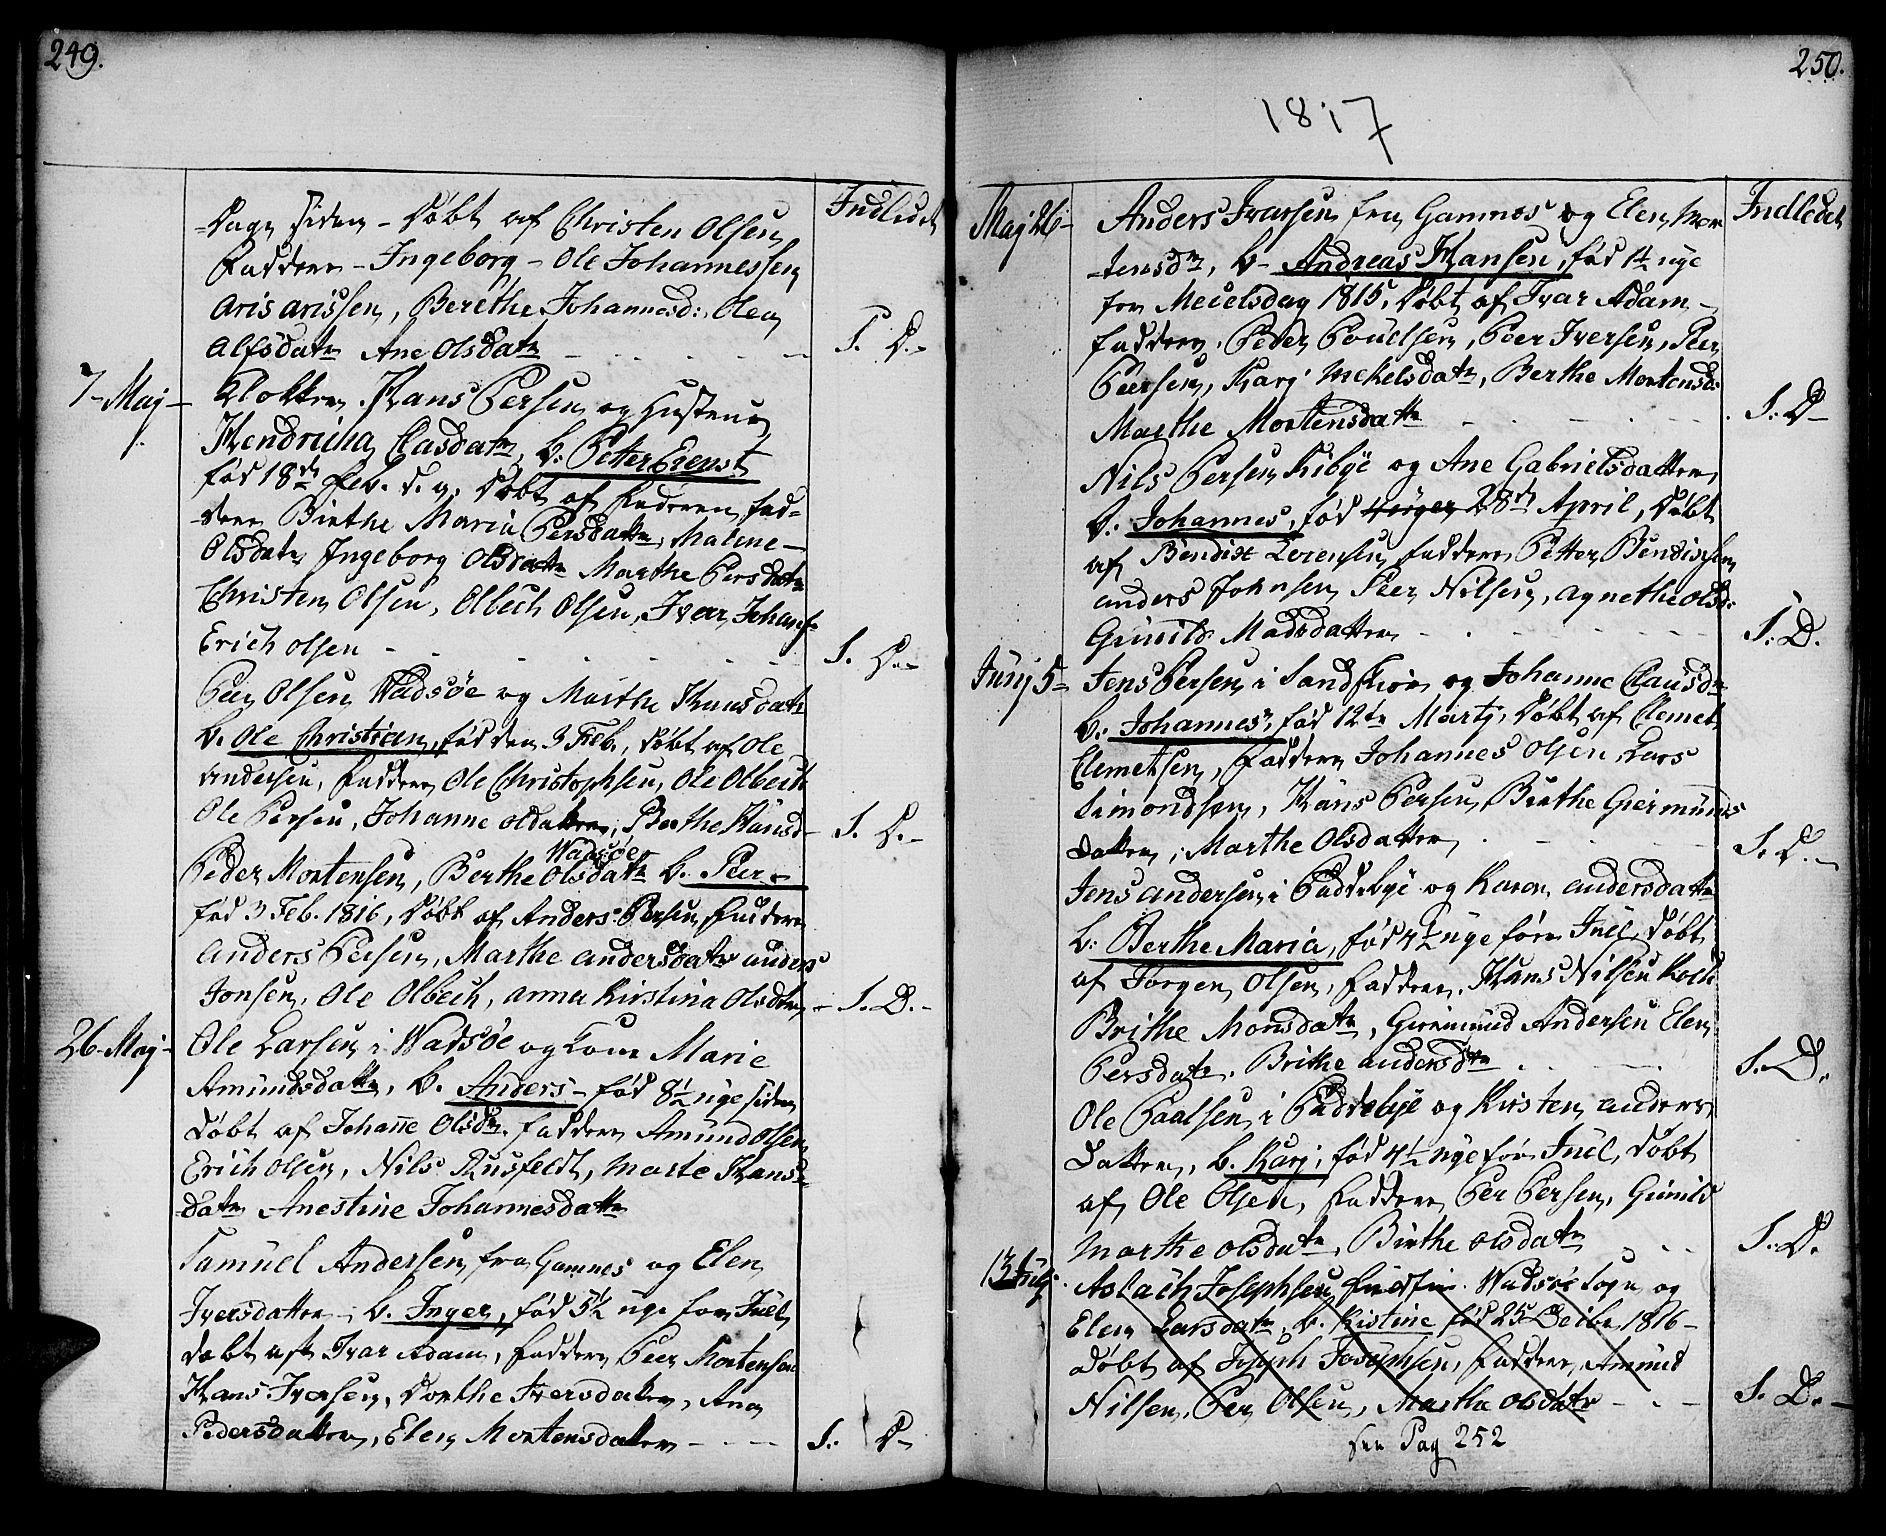 249.
Dage siden - Døbt af Christen Olsen
Faddere - Ingeborg - Ole Johannessen
Aris Arissen, Berethe Johannesd: Olea
Alfsdatr Ane Olsdatr
Indledet
S. D.-
7- Maj -
Klokker Hans Persen og Hustrue
Hendricha Clasdatr, b: Peter Ernst
fød 18de Feb. d. a. Døbt af Faderen fad=
-dere Birthe Maria Persdatr, Malene
Olsdatr Ingeborg Olsdatr Marthe Persdatr
Christen Olsen, Olbech Olsen, Iver Johans-
Erich Olsen -
S. D.-
Peer Olsen Wadsøe og Marthe Hansdatr
b. Ole Christian, fød den 3 Feb, døbt af Ole
Andersen, Faddere Ole Christophsen, Ole Olbech
Ole Persen, Johanne Olsdatter, Berthe Hansd-
S. D.-
Wadsøe
Peder Mortensen, Berthe Olsdatr b. Peer -
fød 3 Feb. 1816, Døbt af Anders Persen, Faddere
Anders Persen, Marthe Andersdatr Anders
Jonsen, Ole Olbech, Anna Kirstina Olsdatr
- S. D.-
26- Maj -
Ole Larsen i Wadsøe og Kone Marie
Amundsdatr, b. Anders - fød 8½ uge siden
Døbt af Johanne Olsdr. Faddere Amund Olsen
Erich Olsen, Nils Rusfeldt, Marte Hans=
-datr Anestine Johannesdatr
Samuel Andersen fra Gamnes og Elen
Iversdatter, b. Inger, fød 5½ uge før Juel,
døbt af Ivar Adam, Faddere Peer Mortensen
Hans Iversen, Dorthe Iversdatter, Ane
Pedersdatter, Elen Mortensdatter - - -
S. D-
250.
1817
Maj 26-
Anders Ivarsen fra Gamnes og Elen Mor
-tensdr, b- Andreas Hansen, fød 1½ uge
før Mecelsdag 1815, Døbt af Ivar Adam -
Faddere, Peder Pouelsen, Peer Iversen, Peer
Peersen, Karj Mekelsdatr, Berthe Mortensd:
Marthe Mortensdatr
Indledet
S. D-
Nils Persen Kibye og Ane Gabrielsdatter
b. Johannes, fød 28de April, Døbt
af Bendix Lorensen, faddere Petter Bendixsen
Anders Johnsen Peer Nilsen, Agnethe Olsd:
Gunild Madsdatter
S. D.
Junj 5-
Jens Persen i Sandskior og Johanne Clausdr
b. Johannes, fød 12te Martj, Døbt af Clemet
Clemetsen, faddere Johannes Olsen Lars
Simondsen, Hans Persen, Birthe Geirmunds
datter, Marthe Olsdatter
S. D.-
Jens Andersen i Paddebye og Karen Andersdatr
b: Berthe Maria, fød 4½ uge før Juel, døbt
af Jørgen Olsen, Faddere, Hans Nilsen Koch
Brithe Monsdatr, Geirmund Andersen Elen
Persdatr, Brithe Andersdr
S. D.
Ole Paalsen i Paddebye og Kirsten Anders
datter, b. Karj, fød 4½ uge før Juel, døbt
af Ole Olsen, Faddere Per Persen, Gunild
Marthe Olsdatr, Birthe Olsdatr
S. D.
13
Aslach Josephsen Wadsøe Sogn og
Elen Larsdatr, b. Kistine fød 25 Decbr 1816 -
døbt af Joseph Josephsen, Faddere, Amund
Nilsen, Per Olsen, Martha Olsdatr - - -
S. D. -
see Pag 252